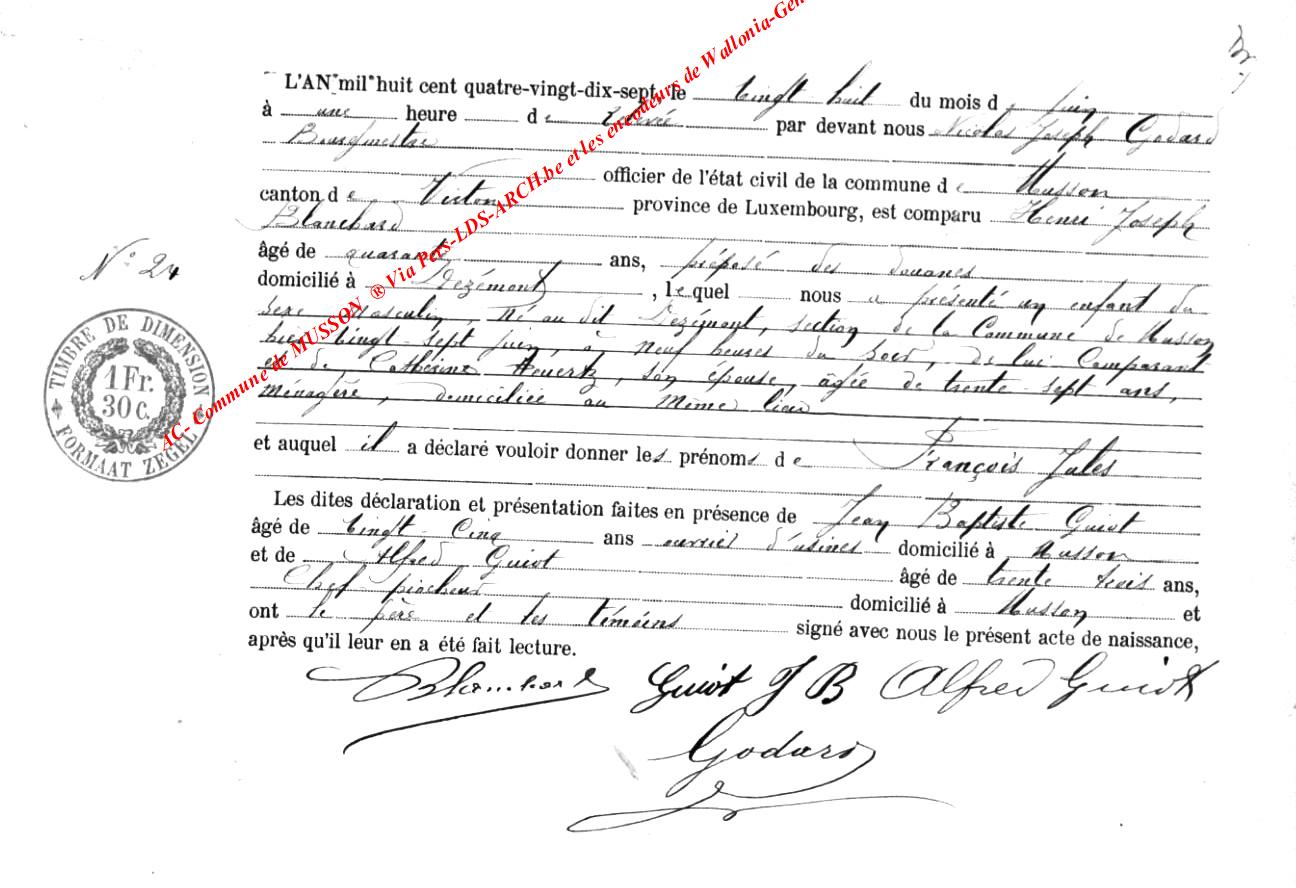 L'AN mil huit cent quatre-vingt-dix-sept, le vingt huit du mois de juin
à une heure de relevée par devant nous Nicolas Joseph Godard
Bourgmestre
officier de l'état civil de la commune de Musson
canton de Virton province de Luxembourg, est comparu Henri Joseph
Blanchard
âgé de quarante ans, préposé des douanes
domicilié à , lequel nous a présenté un enfant du
sexe masculin, né au dit , section de la Commune de Musson
hier vingt-sept juin, à neuf heures du soir, de lui Comparant
et de Catherine , son épouse, âgée de trente-sept ans,
Ménagère, domiciliée au même lieu
et auquel il a déclaré vouloir donner les prénoms de François Jules
Les dites déclaration et présentation faites en présence de Jean Baptiste Guiot
âgé de vingt-cinq ans ouvrier d'usines domicilié à Musson
et de Alfred Guiot âgé de trente trois ans,
Chef piocheur domicilié à Musson et
ont le père et les témoins signé avec nous le présent acte de naissance,
après qu'il leur en a été fait lecture.
Blanchard Guiot J B Alfred Guiot
Godard
N° 24
TIMBRE DE DIMENSION
1 Fr.
30 C.
FORMAAT ZEGEL
AC- Commune de MUSSON ® Via Pers-LDS-ARCH.be et les encodeurs de Wallonia-Gen